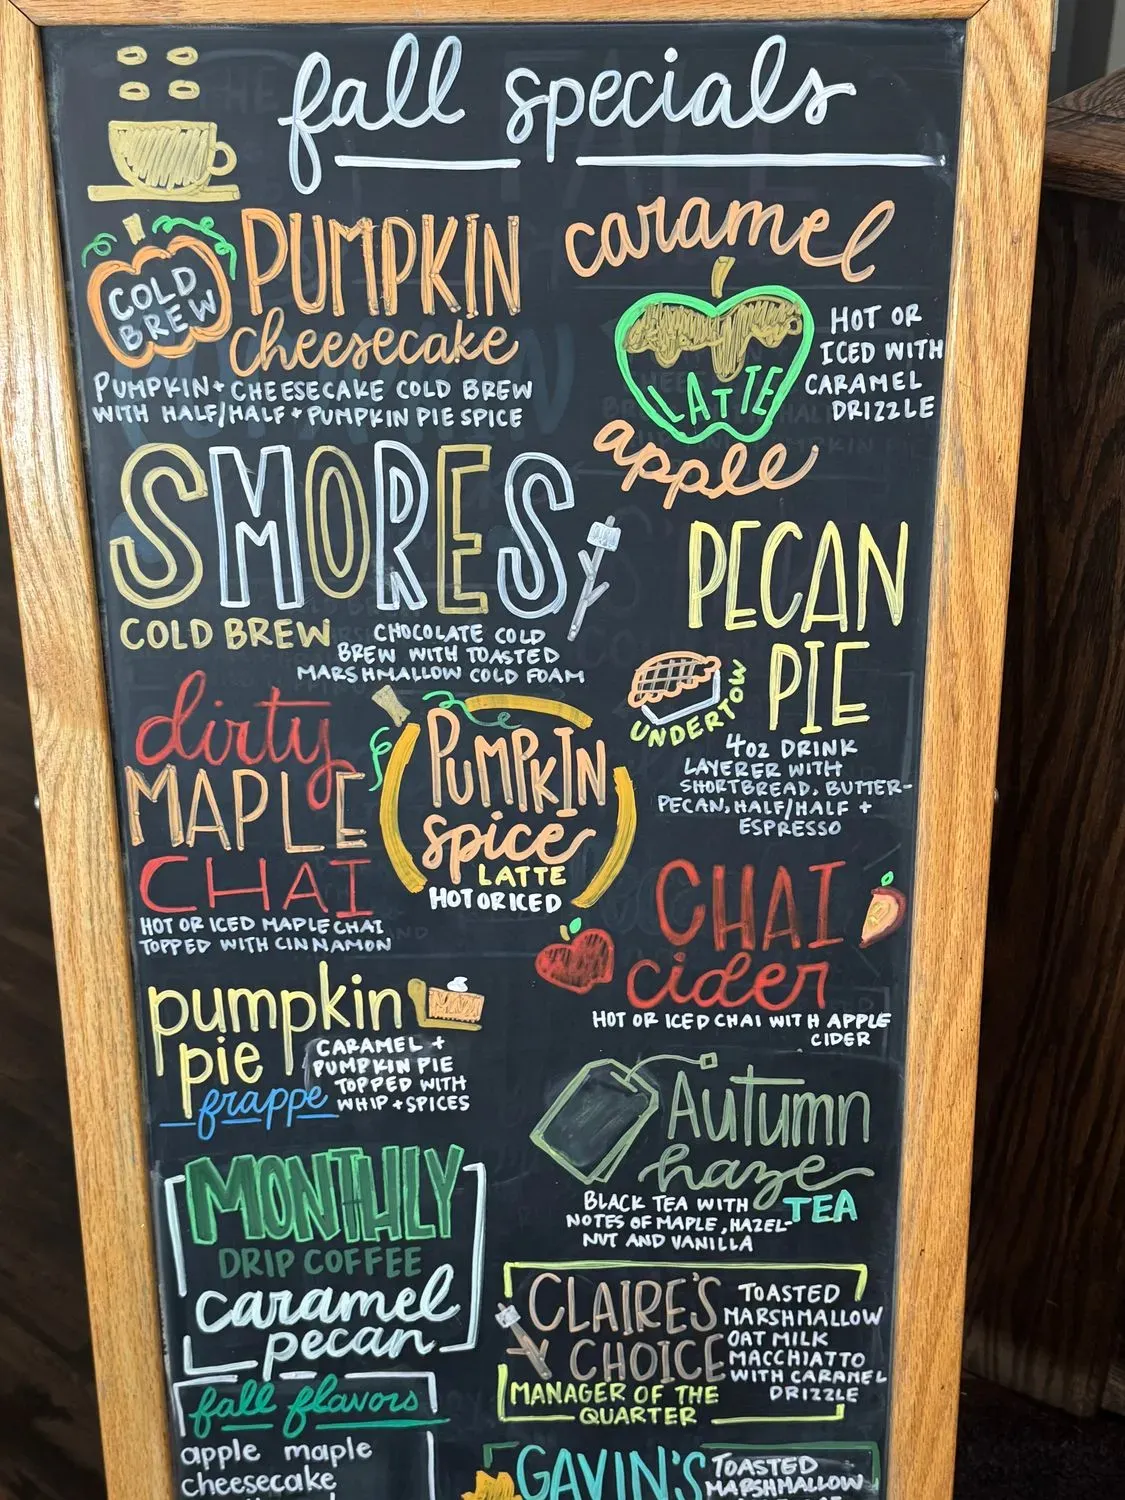 fall specials
COLD
BREW
PUMPKIN
cheesecake
PUMPKIN + CHEESECAKE COLD BREW
WITH HALF/HALF + PUMPKIN PIE SPICE
caramel
LATTE
apple
HOT OR
ICED WITH
CARAMEL
DRIZZLE
SMORES
COLD BREW
CHOCOLATE COLD
BREW WITH TOASTED
MARSHMALLOW COLD FOAM
PECAN
PIE
UNDERTOW
4OZ DRINK
LAYERER WITH
SHORTBREAD, BUTTER-
PECAN, HALF/HALF +
ESPRESSO
dirty
MAPLE
CHAI
HOT OR ICED MAPLE CHAI
TOPPED WITH CINNAMON
PUMPKIN
spice
LATTE
HOT OR ICED
CHAI
cider
HOT OR ICED CHAI WITH APPLE
CIDER
pumpkin
pie
frappe
CARAMEL +
PUMPKIN PIE
TOPPED WITH
WHIP + SPICES
AUTUMN
haze
TEA
BLACK TEA WITH
NOTES OF MAPLE, HAZEL-
NUT AND VANILLA
MONTHLY
DRIP COFFEE
caramel
pecan
CLAIRE'S
CHOICE
MANAGER OF THE
QUARTER
TOASTED
MARSHMALLOW
OAT MILK
MACCHIATTO
WITH CARAMEL
DRIZZLE
fall flavors
apple maple
cheesecake
GAVIN'S
TOASTED
MARSHMALLOW